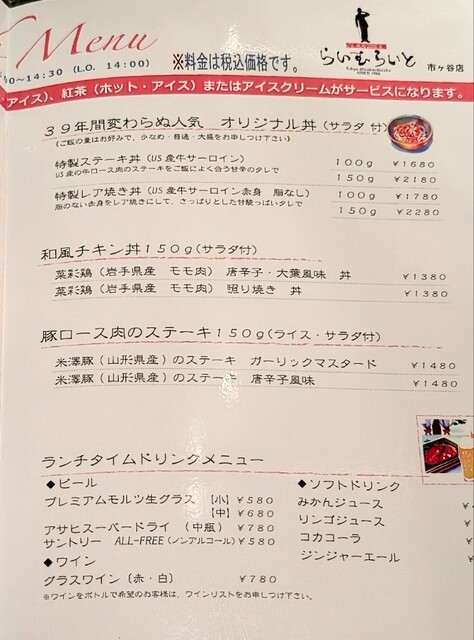 Menu
らいむらいと
SINCE 1980
市ヶ谷店
0～14:30 (L.O. 14:00)
※料金は税込価格です。
アイス)、紅茶 (ホット・アイス) またはアイスクリームがサービスになります。
39年間変わらぬ人気 オリジナル丼 (サラダ 付)
(ご飯の量はお好みで、少なめ・普通・大盛をお申しつけ下さい)
特製ステーキ丼 (US産牛サーロイン) 100g ¥1680
US産の牛ロース肉のステーキをご飯によく合う甘辛のタレで 150g ¥2180
特製レア焼き丼 (US産牛サーロイン赤身 脂なし) 100g ¥1780
脂のない赤身をレア焼きにして、さっぱりとした甘酸っぱいタレで 150g ¥2280
和風チキン丼150g(サラダ付)
菜彩鶏 (岩手県産 モモ肉) 唐辛子・大葉風味 丼 ¥1380
菜彩鶏 (岩手県産 モモ肉) 照り焼き 丼 ¥1380
豚ロース肉のステーキ150g(ライス・サラダ付)
米澤豚 (山形県産) のステーキ ガーリックマスタード ¥1480
米澤豚 (山形県産) のステーキ 唐辛子風味 ¥1480
ランチタイムドリンクメニュー
◆ビール
プレミアムモルツ生グラス 【小】¥580
【中】¥680
アサヒスーパードライ (中瓶) ¥780
サントリー ALL-FREE (ノンアルコール) ¥580
◆ワイン
グラスワイン〔赤・白〕 ¥780
※ワインをボトルで希望のお客様は、ワインリストをお申しつけ下さい。
◆ソフトドリンク
みかんジュース
リンゴジュース
コカコーラ
ジンジャーエール